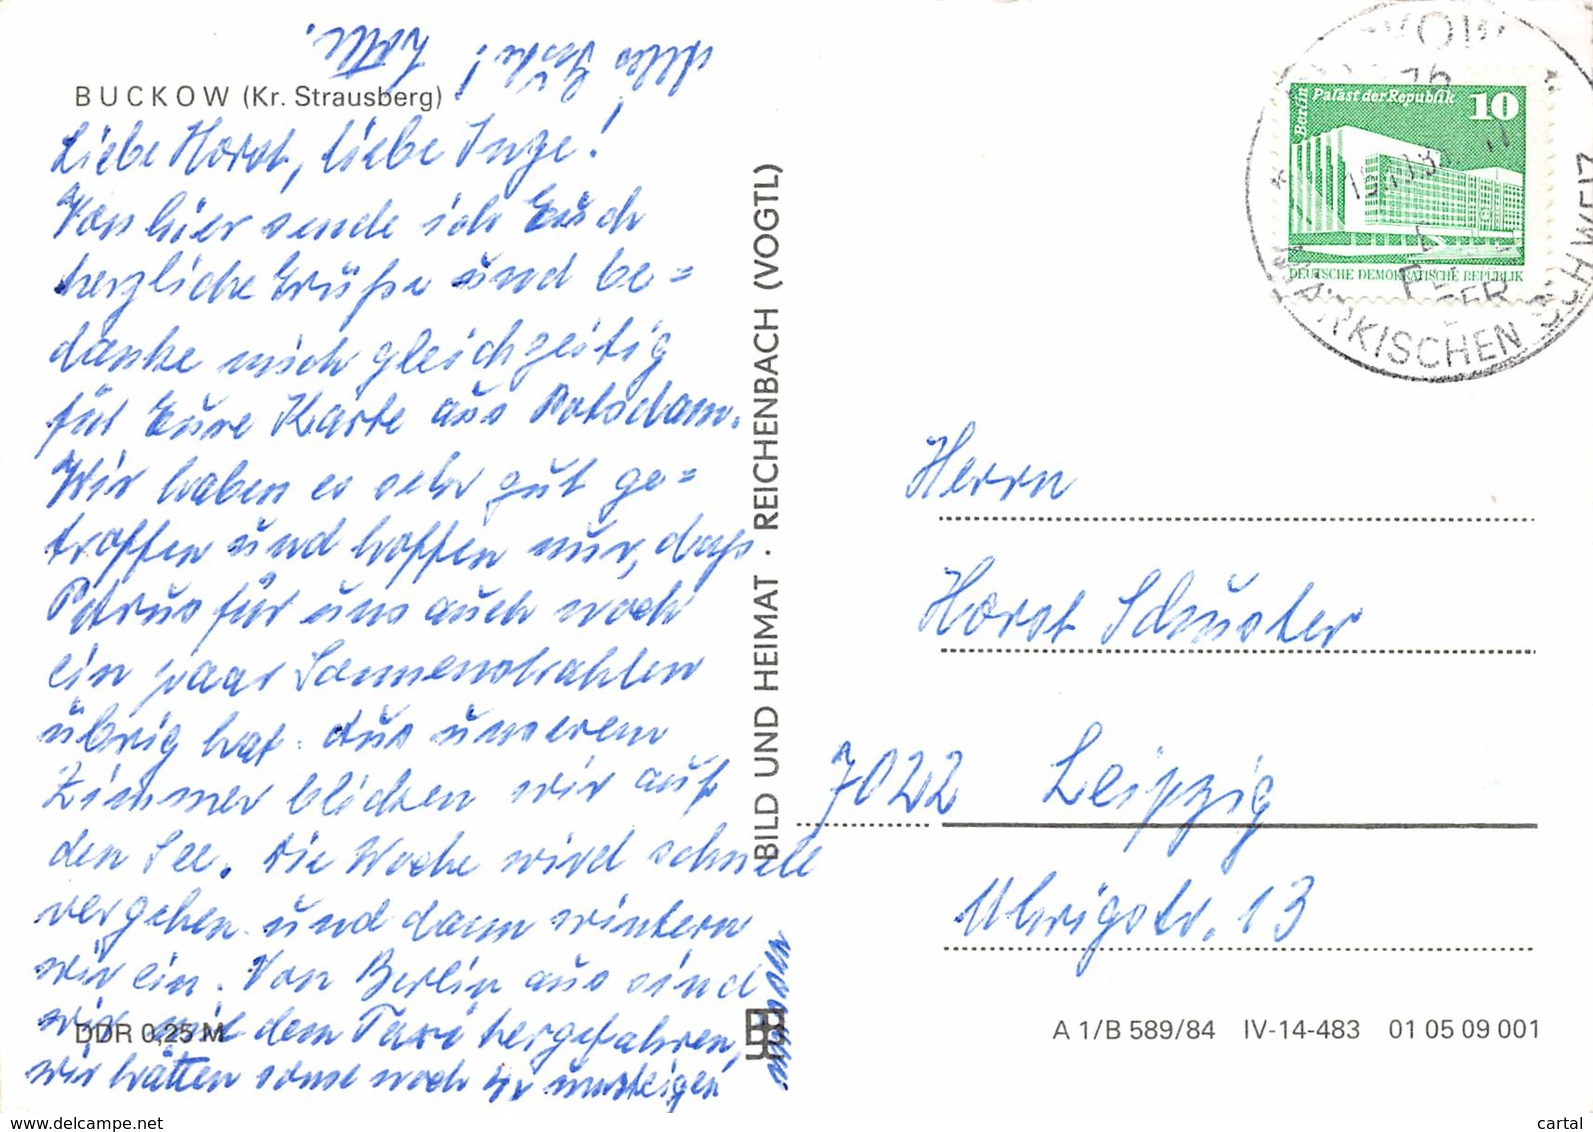 BUCKOW (Kr. Strausberg)
Liebe Horst, liebe Inge!
Von hier sende ich Euch
herzliche Grüße und be=
danke mich gleichzeitig
für Eure Karte aus Potsdam.
Wir haben es sehr gut ge=
troffen und hoffen nur, daß
Petrus für uns auch noch
ein paar Sonnenstrahlen
übrig hat. Aus unserem
Zimmer blicken wir auf
den See. Die Woche wird schnell
vergehen und dann wintern
wir ein. Von Berlin aus sind
wir mit dem Taxi hergefahren,
wir hätten sonst noch umsteigen
müssen
Alles Gute! Lotte.
DDR 0,25 M
BILD UND HEIMAT · REICHENBACH (VOGTL)
Berlin Palast der Republik 10
DEUTSCHE DEMOKRATISCHE REPUBLIK
MÄRKISCHEN SCHWEIZ
Herrn
Horst Schuster
7022 Leipzig
Uhrigstr. 13
A 1/B 589/84 IV-14-483 01 05 09 001
cartal
www.delcampe.net